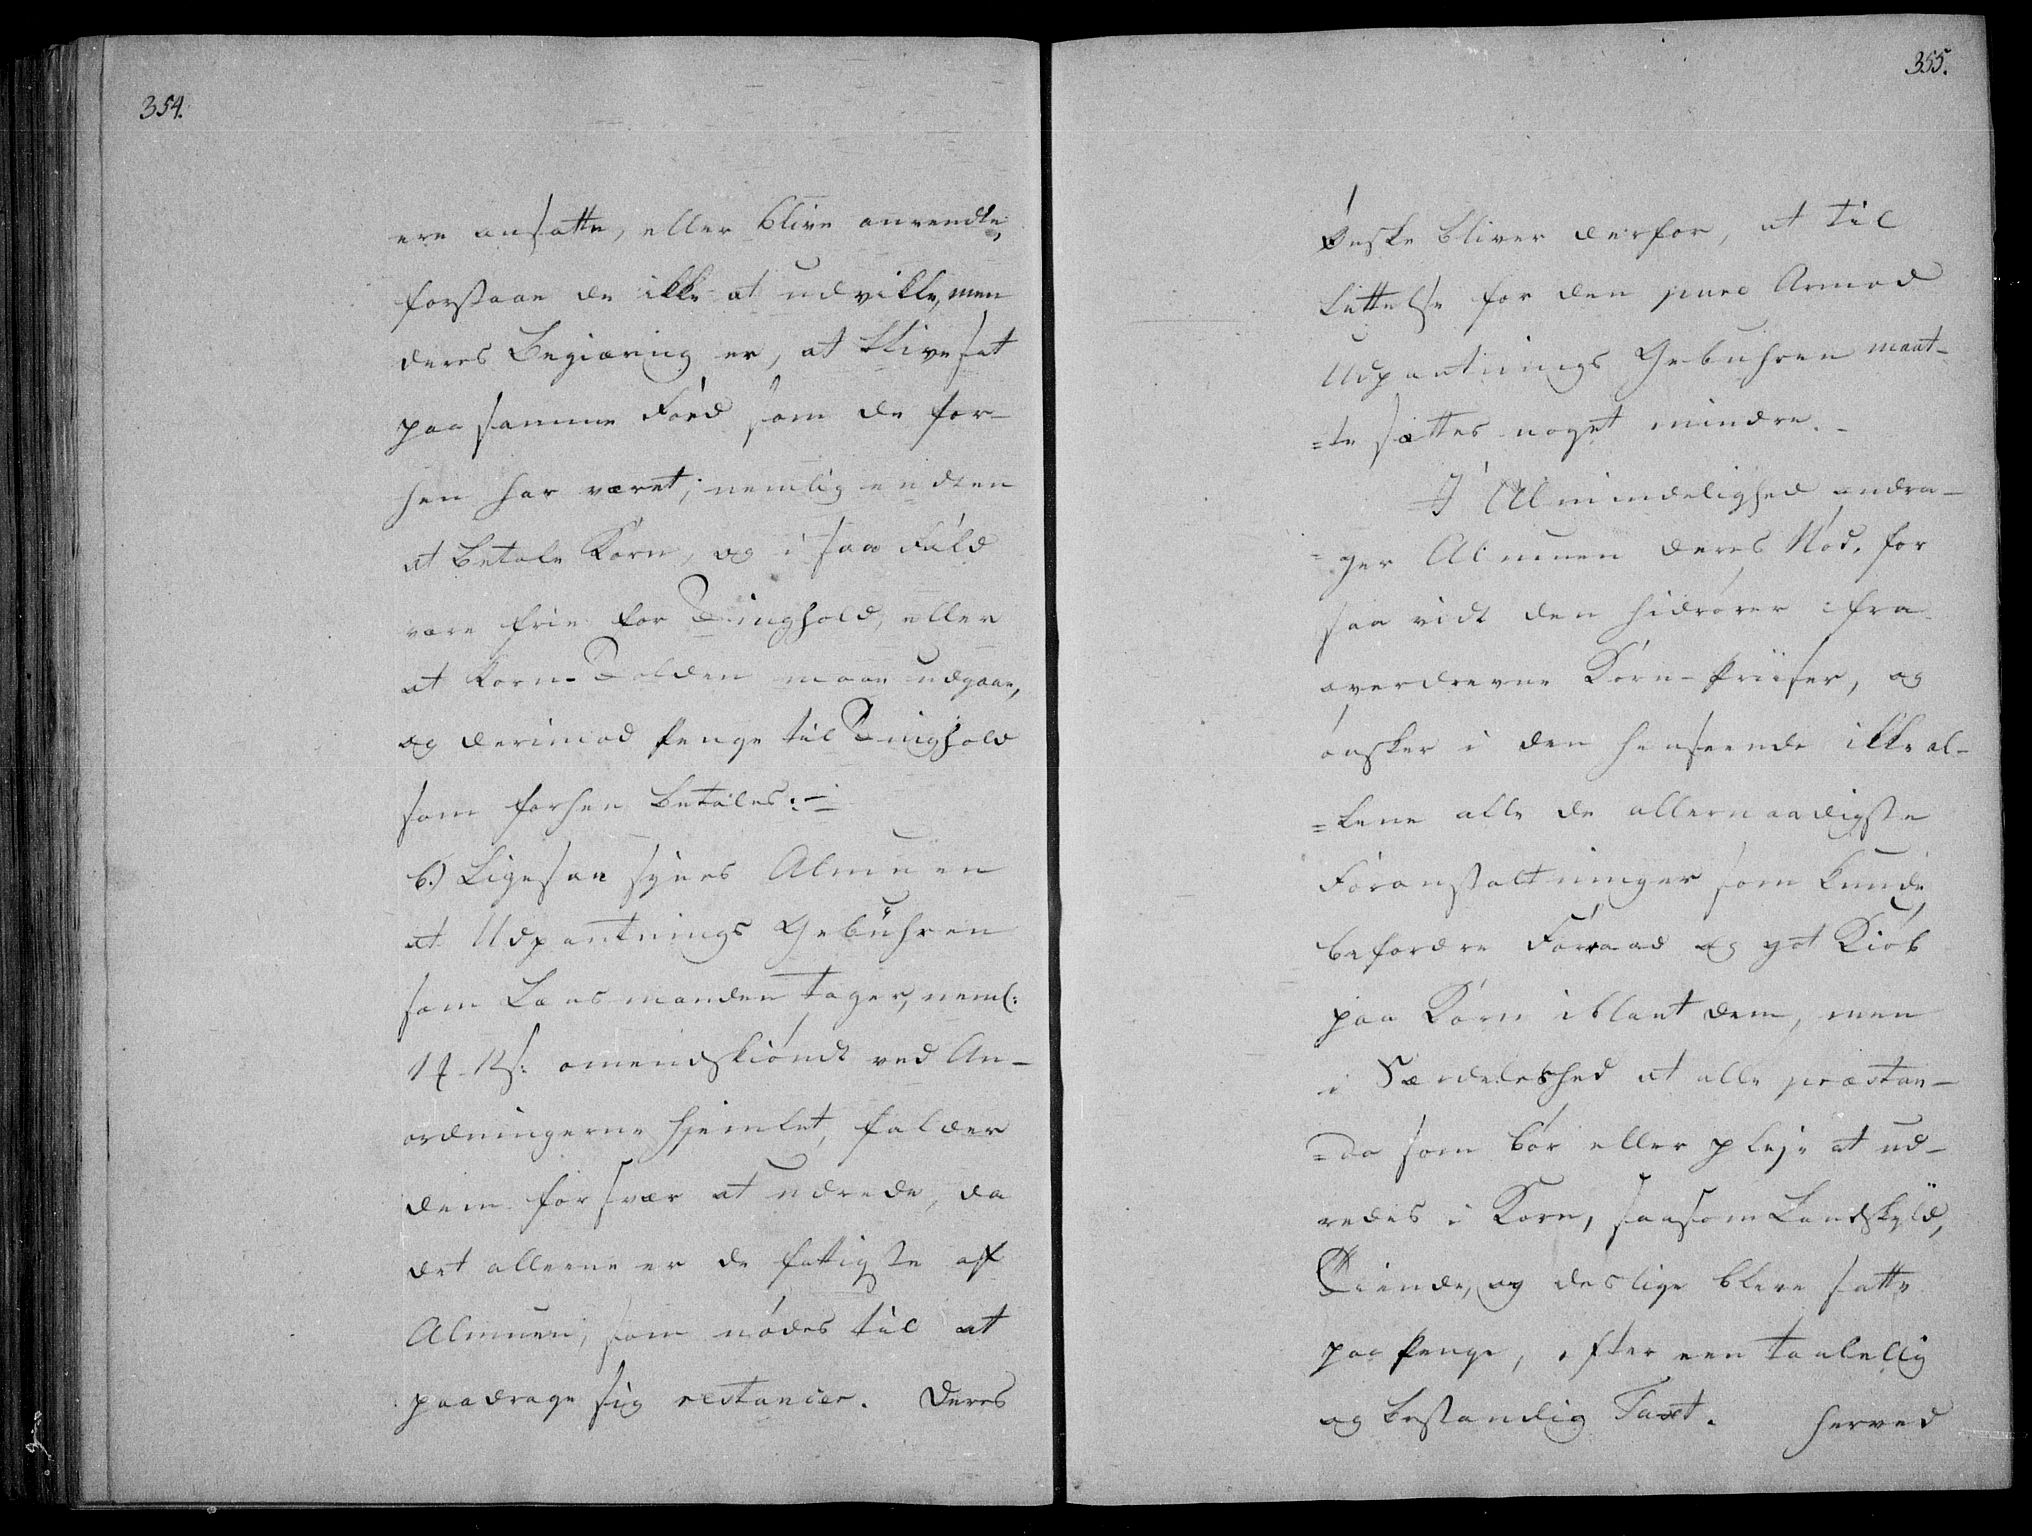 354.
ere ansatte, eller blive anvendte,
forstaae de ikke at udvikle, men
deres Begiæring er, at blive sat
paa samme Foed som de for-
hen har været; nemlig endten
at betale Korn, og i saa Fald
være frie for Tinghold, eller
at Korn-Tolden maae udgaae,
og derimod Penge til Tinghold
som forhen betales.-
b.) Ligesaa synes Almuen
at Udpantnings Gebühren
som Lensmanden tager, neml:
12 s: omendskiøndt ved An-
ordningerne hjemlet, falder
dem for svær at udrede, da
det allene er de fattigste af
Almuen, som nødes til at
paadrage sig restancier. Deres
355.
Ønske bliver derfor, at til
Lettelse for den pure Armod
Udpantnings Gebuhren maat-
=te sættes noget mindre.-
I Almindelighed andra-
=ger Almuen deres Nød, for
saa vidt den hidrører ifra
overdrevne Korn-Priiser, og
ønsker i den henseende ikke al-
=lene alle de allernaadigste
Foranstaltninger som kunde
befordre Forraad og got Kiøb
paa Korn iblant dem, men
i Særdeleshed at alle præstan-
=da som bør eller pleje at ud-
redes i Korn, saasom Landskyld,
Tiende, og deslige bleve satte
paa Penge, efter een taalelig
og bestandig Taxt. Herved